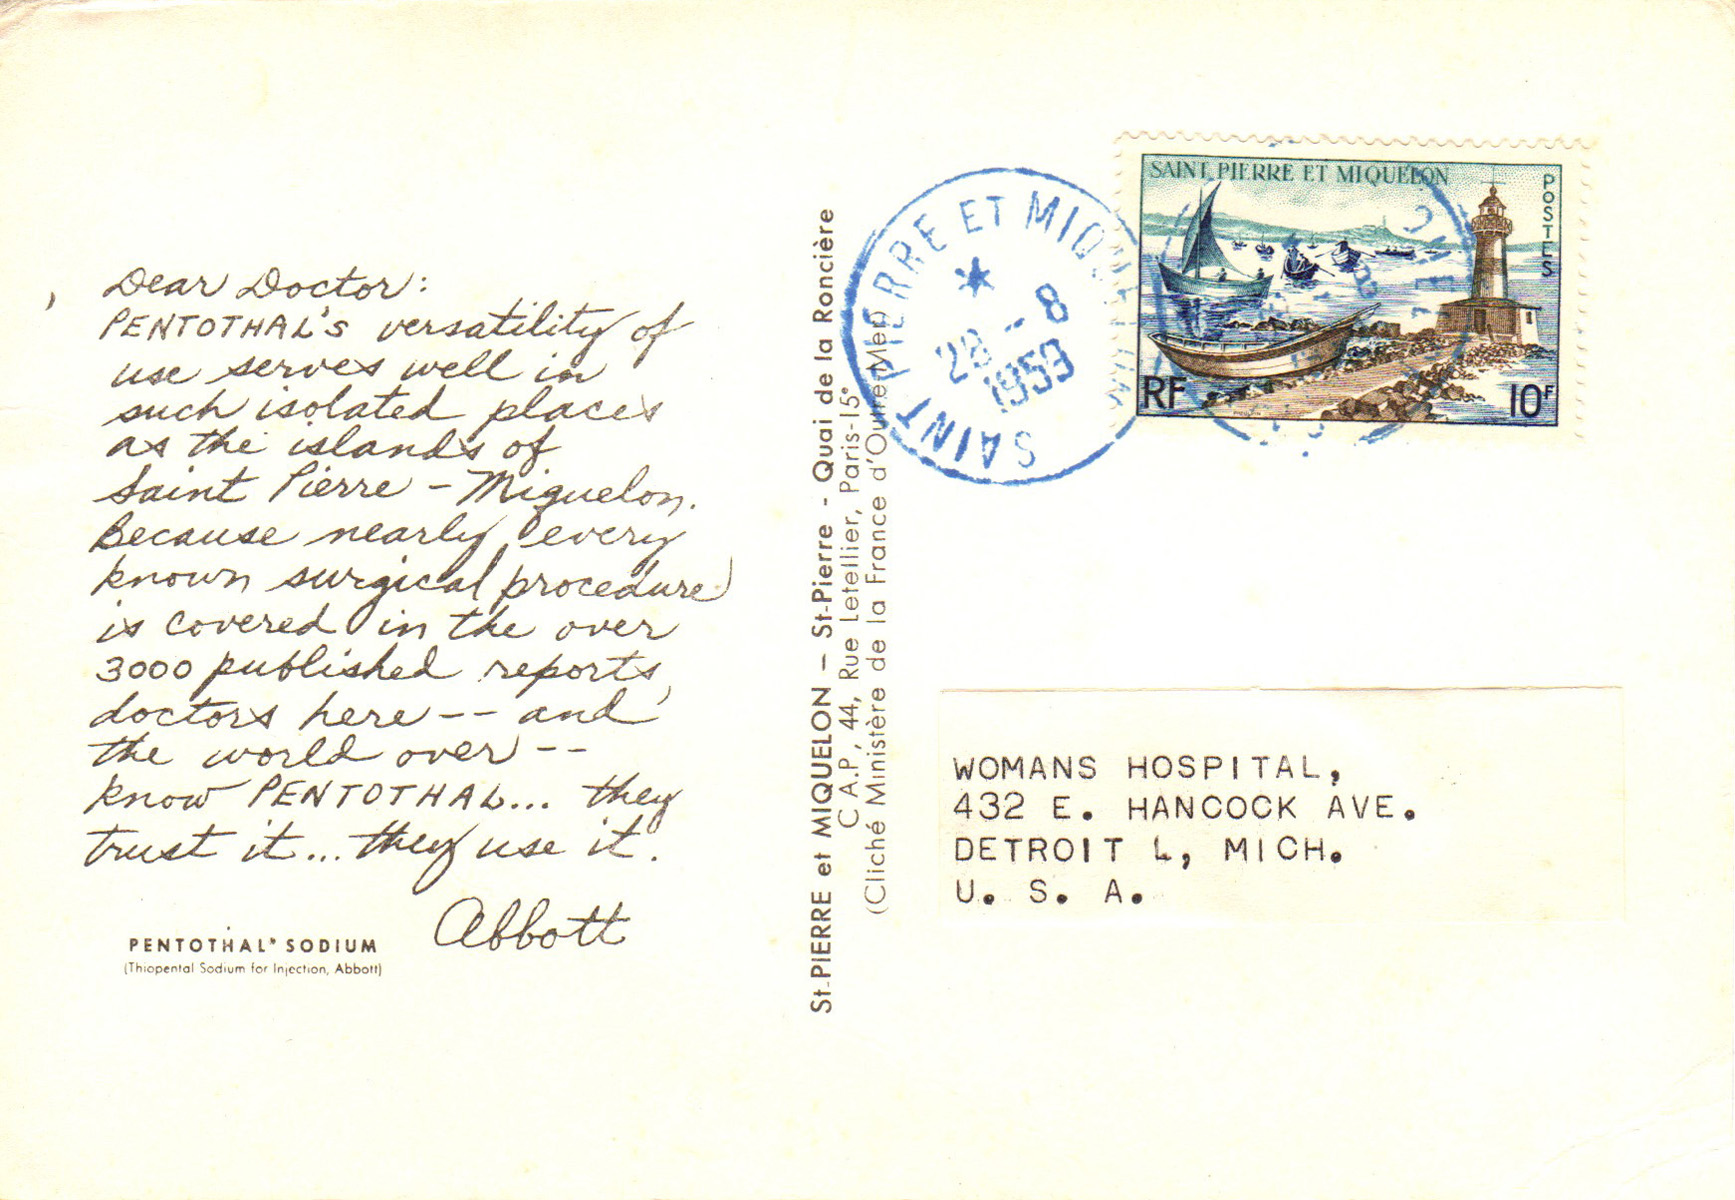 Dear Doctor:
PENTOTHAL'S versatility of
use serves well in
such isolated places
as the islands of
Saint Pierre - Miquelon.
Because nearly every
known surgical procedure
is covered in the over
3000 published reports,
doctors here -- and
the world over --
know PENTOTHAL... they
trust it... they use it.
Abbott
PENTOTHAL® SODIUM
(Thiopental Sodium for Injection, Abbott)
St-PIERRE et MIQUELON — St-Pierre - Quai de la Roncière
C.A.P, 44, Rue Letellier, Paris-15°
(Cliché Ministère de la France d'Outre-Mer)
SAINT PIERRE ET MIQUELON
28 - 8
1959
SAINT PIERRE ET MIQUELON
POSTES
RF
10F
WOMANS HOSPITAL,
432 E. HANCOCK AVE.
DETROIT L, MICH.
U. S. A.